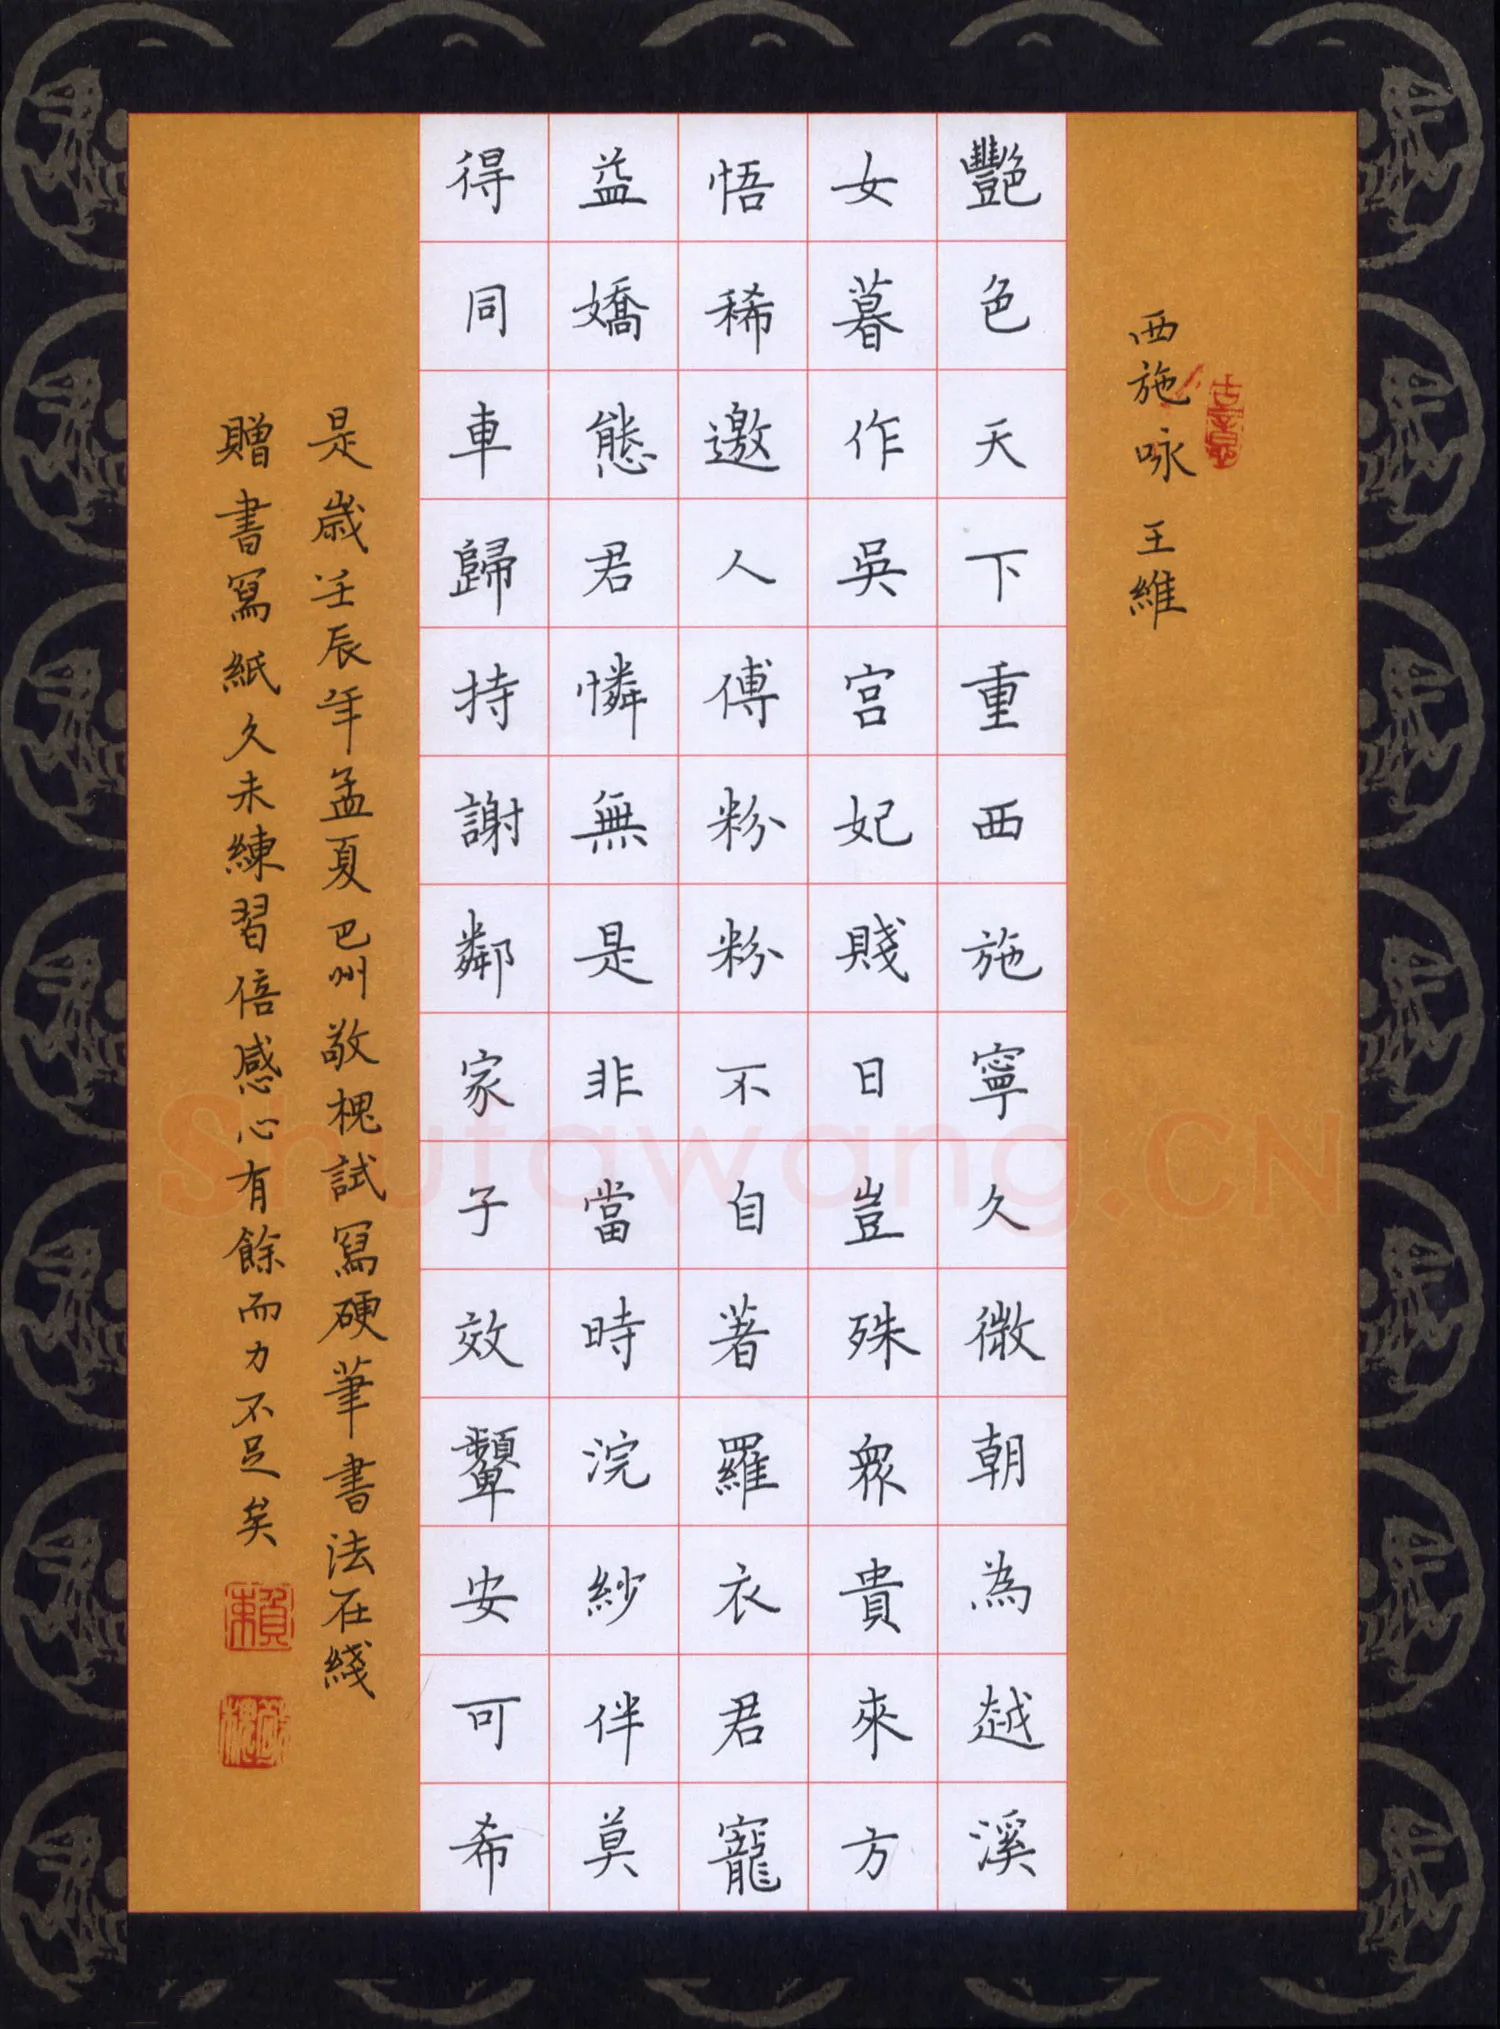 西施咏 王維
艷色天下重西施寧久微朝為越溪
女暮作吳宮妃賤日豈殊衆貴來方
悟稀邀人傅粉粉不自著羅衣君寵
益嬌態君憐無是非當時浣紗伴莫
得同車歸持謝鄰家子效顰安可希
是歲壬辰年孟夏巴州敬槐試寫硬筆書法在綫
贈書寫紙久未練習倍感心有餘而力不足矣
賴
敬槐
Shufawang.CN